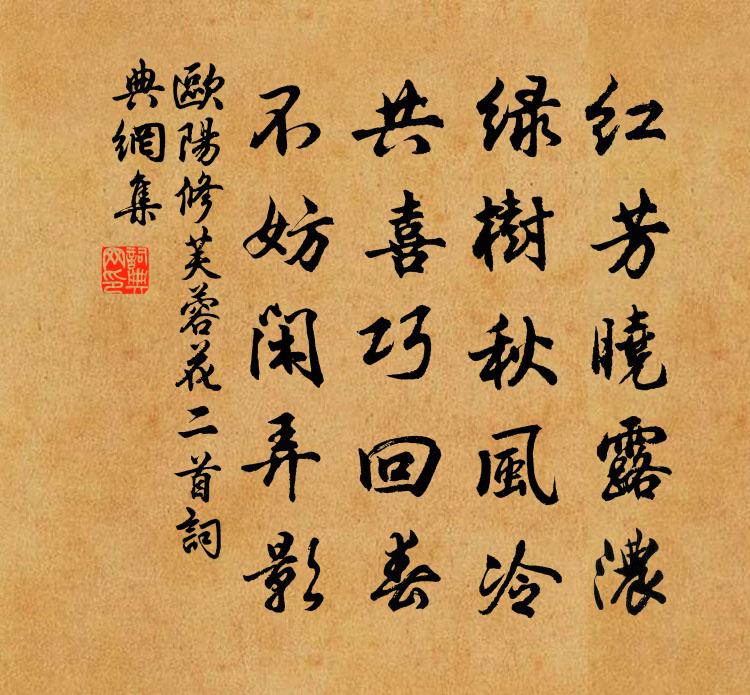 红芳曉露濃
緑樹秋風冷
共喜巧回春
不妨閑弄影
歐陽修芙蓉花二首詞
典網集
詞典
网印